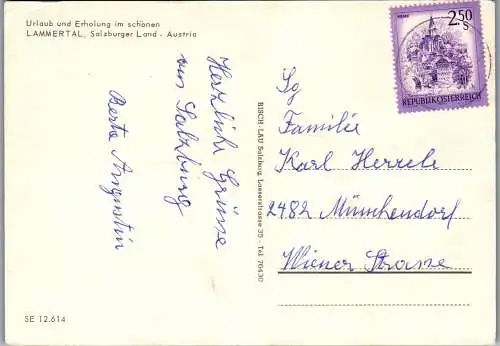 Urlaub und Erholung im schönen
LAMMERTAL, Salzburger Land - Austria
Herzliche Grüsse
aus Salzburg
Berta Augustin
SE 12.614
RISCH-LAU Salzburg, Lasserstrasse 35 - Tel. 76430
2.50
S
REPUBLIK ÖSTERREICH
Sg
Familie
Karl Herrele
2482 Münchendorf
Wiener Strasse